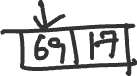 69 17